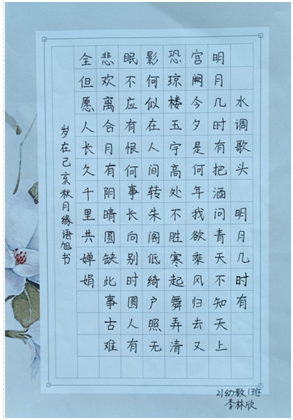 水调歌头 明月几时有
明月几时有把酒问青天不知天上
宫阙今夕是何年我欲乘风归去又
恐琼楼玉宇高处不胜寒起舞弄清
影何似在人间转朱阁低绮户照无
眠不应有恨何事长向别时圆人有
悲欢离合月有阴晴圆缺此事古难
全但愿人长久千里共婵娟
岁在己亥秋月缘语旭书
21幼教13班
李林欣